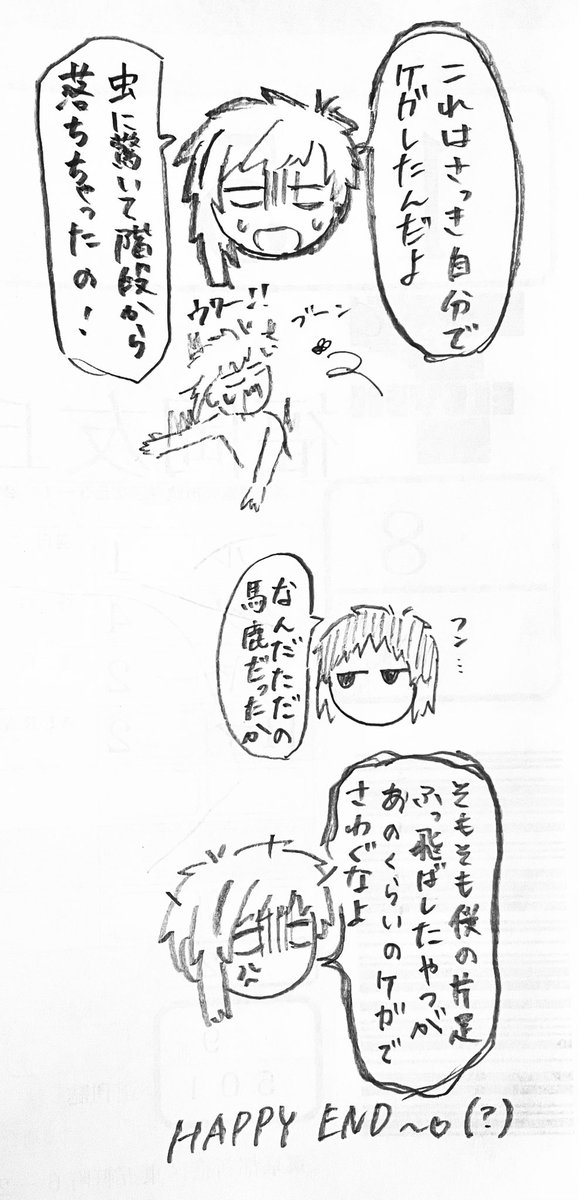 これはさっき自分で
ケガしたんだよ
虫に驚いて階段から
落ちちゃったの!
ウワー!!
ブーン
フン…
なんだただの
馬鹿だったか
そもそも僕の片足
ふっ飛ばしたやつが
あのくらいのケガで
さわぐなよ
HAPPY END〜♡(?)